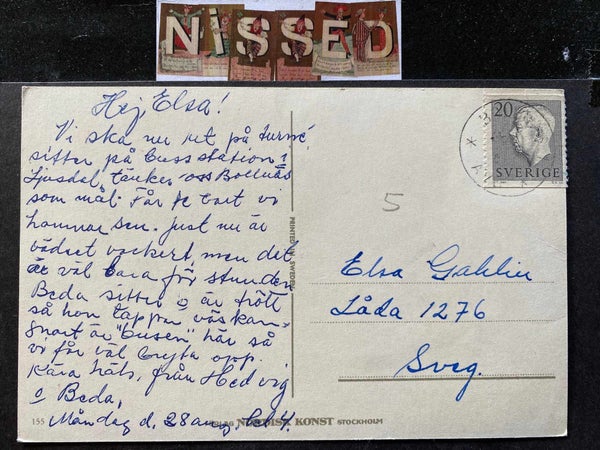 NiSSED
Hej, Elsa!
Vi ska nu ut på turné
sitter på busstation i
Ljusdal, tänker oss Bollnäs
som mål. Får se vart vi
hamnar sen. just nu är
vädret vackert, men det
är väl bara för stunden
Beda sitter o är trött
så hon tappar väskan.
Snart är "bussen" här så
vi får väl bryta opp.
Kära häls, från Hedvig
o Beda,
Måndag d, 28 aug. kl 4.
155
NORDISK KONST STOCKHOLM
PRINTED IN SWEDEN
20
SVERIGE
5
Elsa Gahlin
Låda 1276
Sveg.